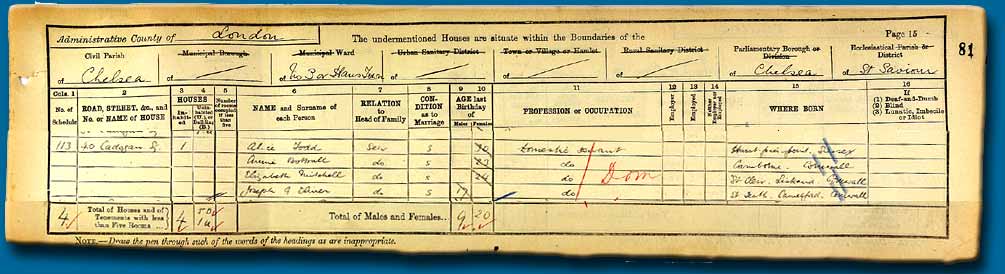 Administrative County of London The undermentioned Houses are situate within the Boundaries of the Page 15
81
Civil Parish Municipal Borough Municipal Ward Urban Sanitary District Town or Village or Hamlet Rural Sanitary District Parliamentary Borough or Division Ecclesiastical Parish or District
of Chelsea of of No 3 or Hans Town of of of of Chelsea of St Saviour
Cols. 1 2 3 4 5 6 7 8 9 10 11 12 13 14 15 16
No. of Schedule ROAD, STREET, &c., and No. or NAME of HOUSE HOUSES Inhabited Uninhabited (U.), or Building (B.) Number of rooms occupied if less than five NAME and Surname of each Person RELATION to Head of Family CONDITION as to Marriage AGE last Birthday of Males Females PROFESSION or OCCUPATION Employer Employed Neither Employer nor Employed WHERE BORN (1) Deaf-and-Dumb (2) Blind (3) Lunatic, Imbecile or Idiot
113 40 Cadogan S. 1 Alice Todd Serv S Domestic Servant Hurstpierpoint, Sussex
Annie do S 23 do Camborne Cornwall
Elizabeth Mitchell do S 24 do Dom St Cleer, Liskeard, Cornwall
Joseph do S 17 do St Teath, Camelford, Cornwall
4 Total of Houses and of Tenements with less than Five Rooms 4 Total of Males and Females... 9 20
NOTE.—Draw the pen through such of the words of the headings as are inappropriate.